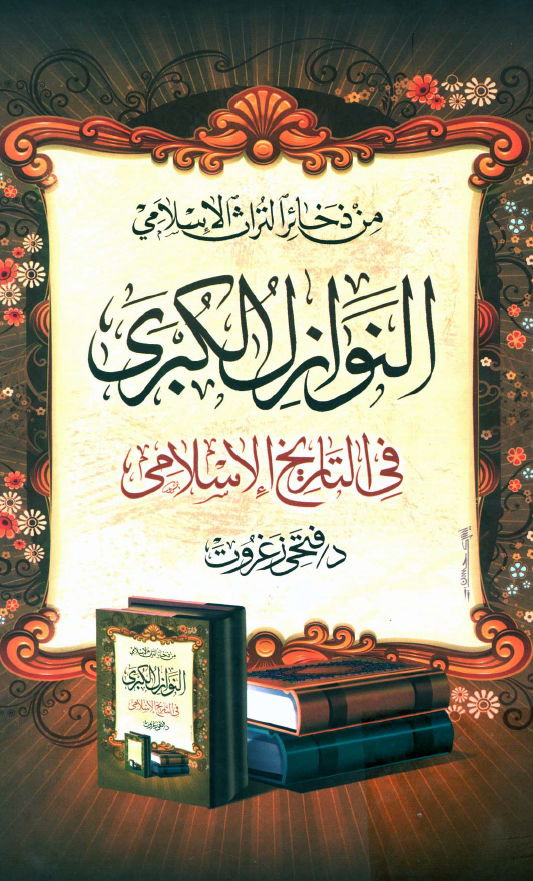 من ذخائر التراث الإسلامي
النوازل الكبرى
في التاريخ الإسلامي
د/ فتحي زغروت
من ذخائر التراث الإسلامي
النوازل الكبرى
في التاريخ الإسلامي
د/ فتحي زغروت